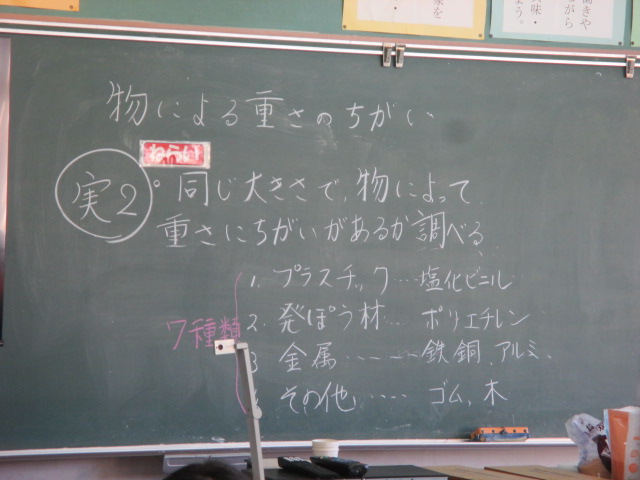 物による重さのちがい
ねらい
実2 同じ大きさで、物によって
重さにちがいがあるか調べる
7種類
1. プラスチック…塩化ビニル
2. 発ぽう材… ポリエチレン
3 金属…… 鉄銅、アルミ、
その他…… ゴム、木